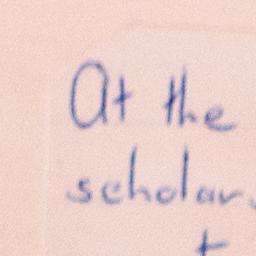 At the
scholar.
t